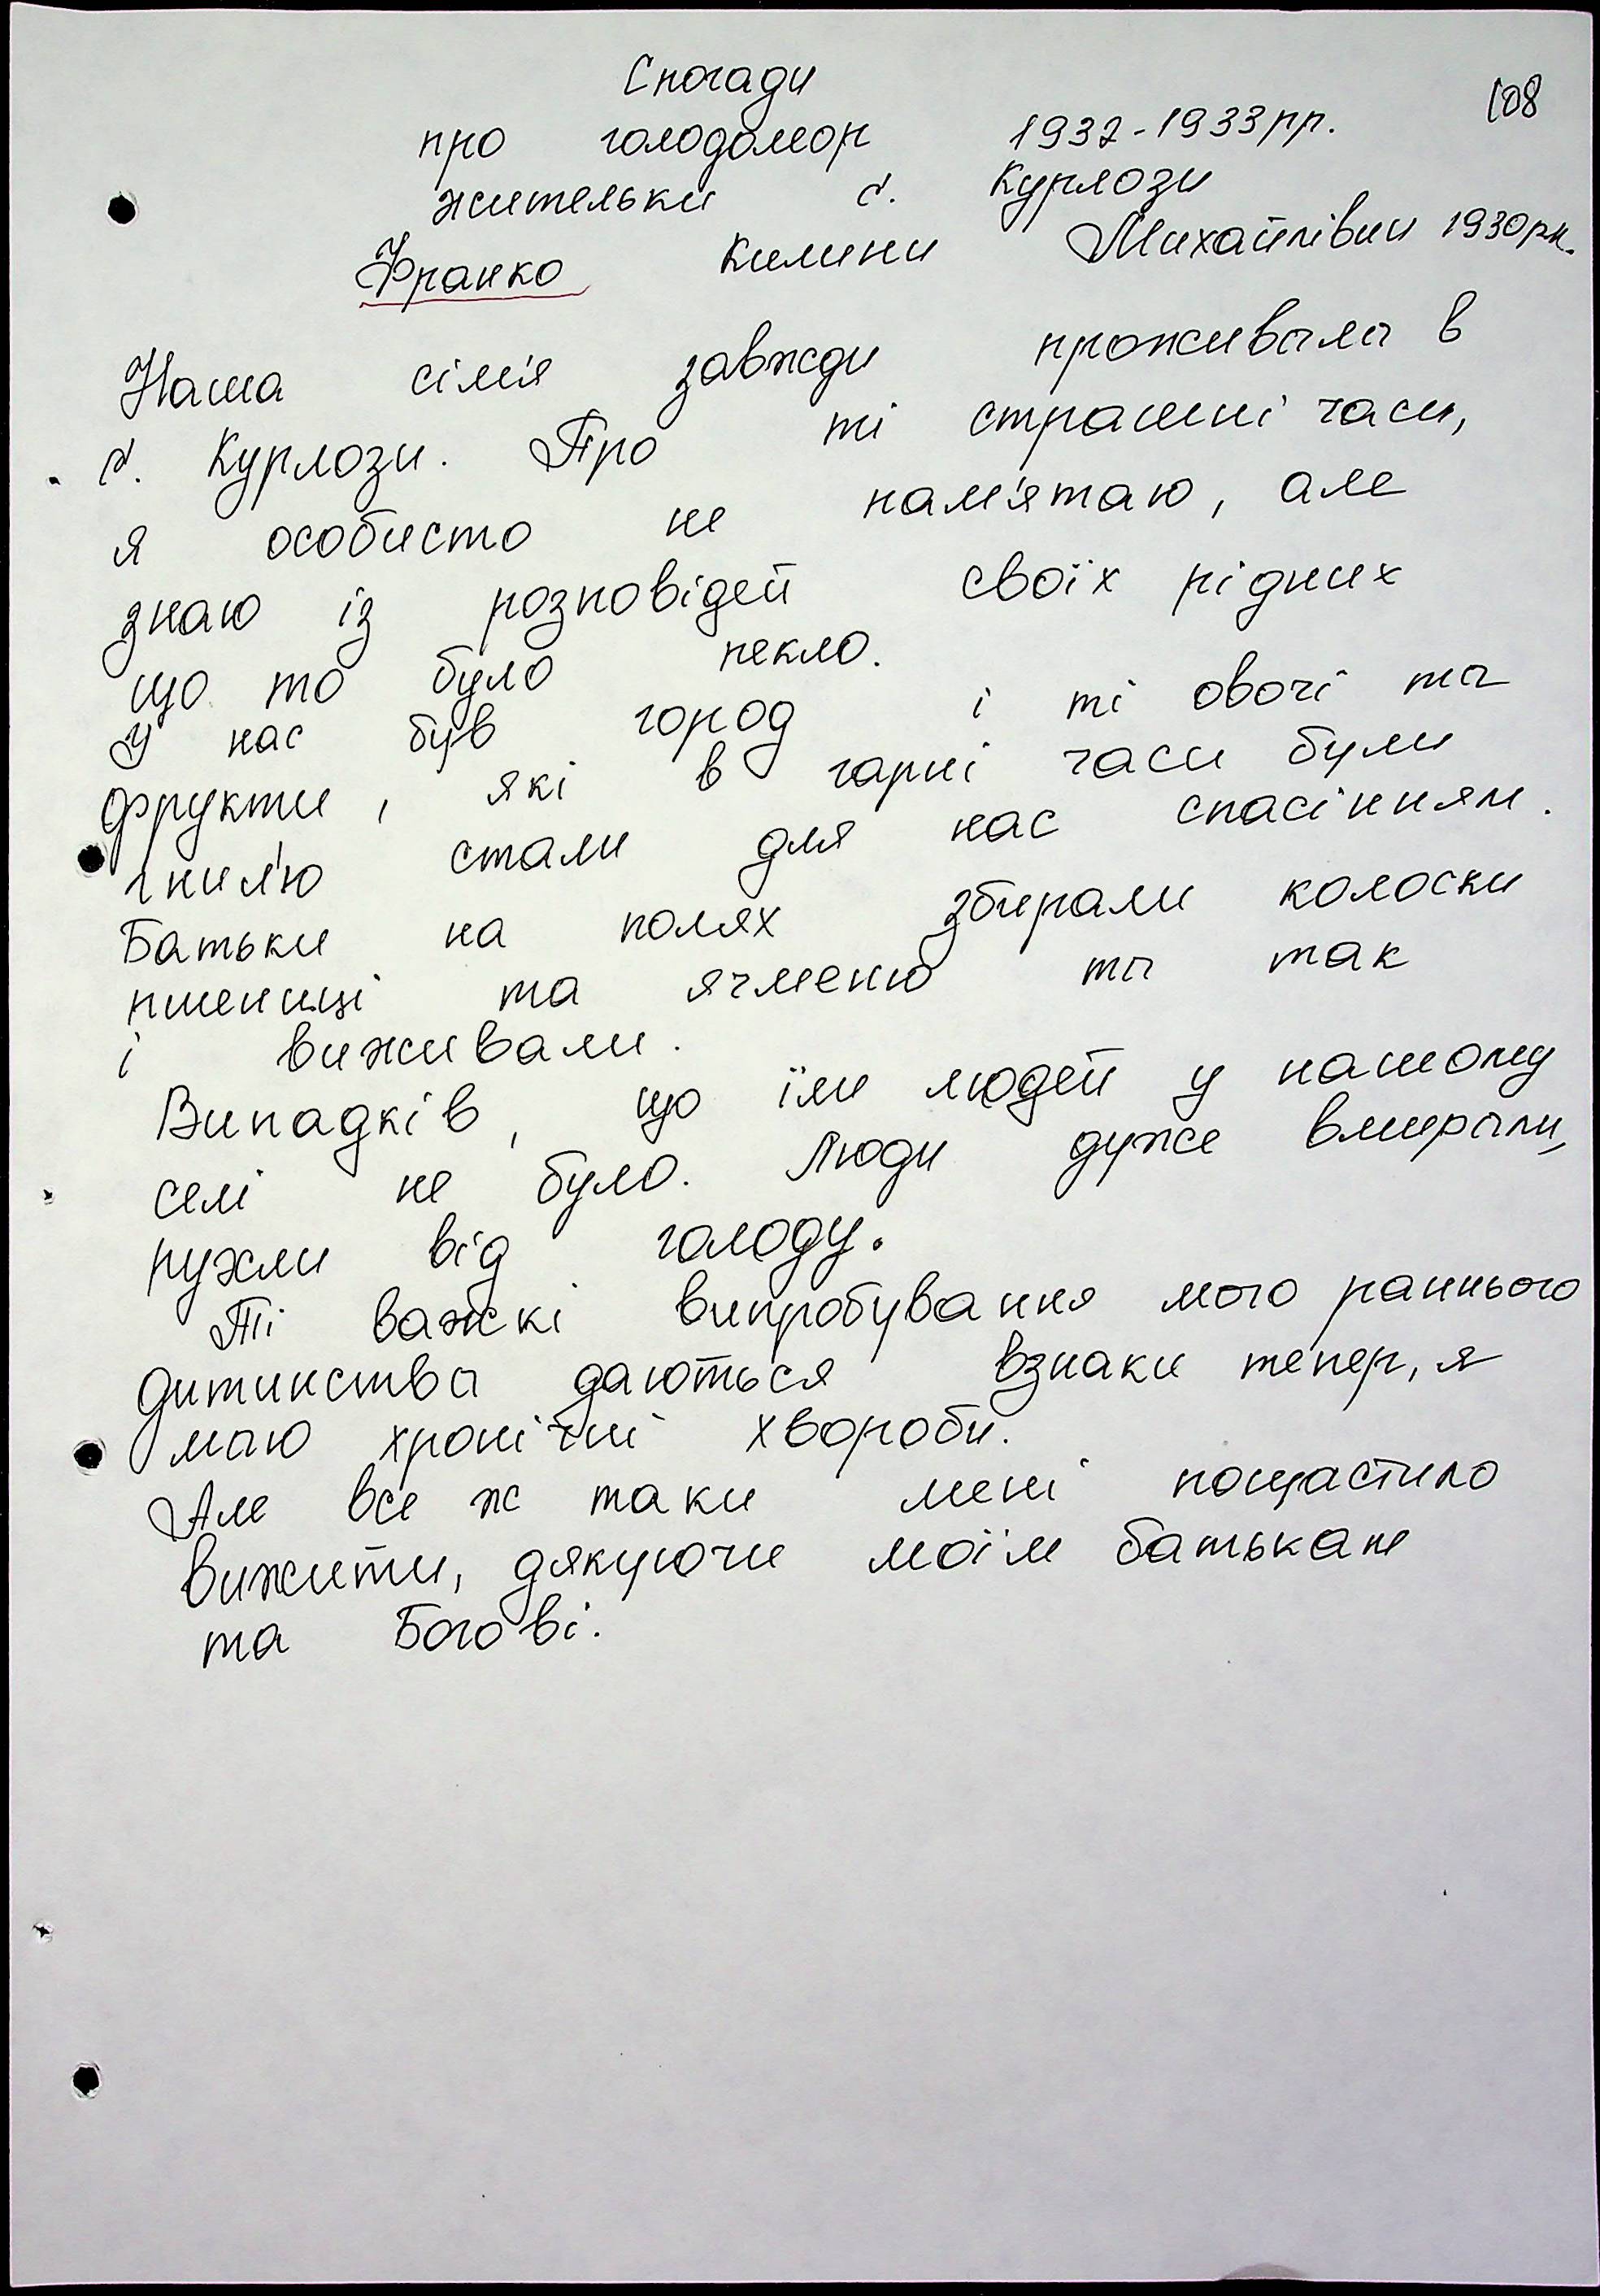 Спогади
108
про голодомор 1932-1933рр.
жительки с. Курлози
Франко Килини Михайлівни 1930рн.
Наша сім'я завжди проживала в
с. Курлози. Про ті страшні часи,
я особисто не пам'ятаю, але
знаю із розповідей своїх рідних
що то було пекло.
У нас був город і ті овочі та
фрукти, які в гарні часи були
гнил'ю стали для нас спасінням.
Батьки на полях збирали колоски
пшениці та ячменю та так
і виживали.
Випадків, що їли людей у нашому
селі не було. Люди дуже вмирали,
пухли від голоду.
Ті важкі випробування мого раннього
дитинства даються взнаки тепер, я
маю хронічні хвороби.
Але все ж таки мені пощастило
вижити, дякуючи моїм батькам
та Богові.